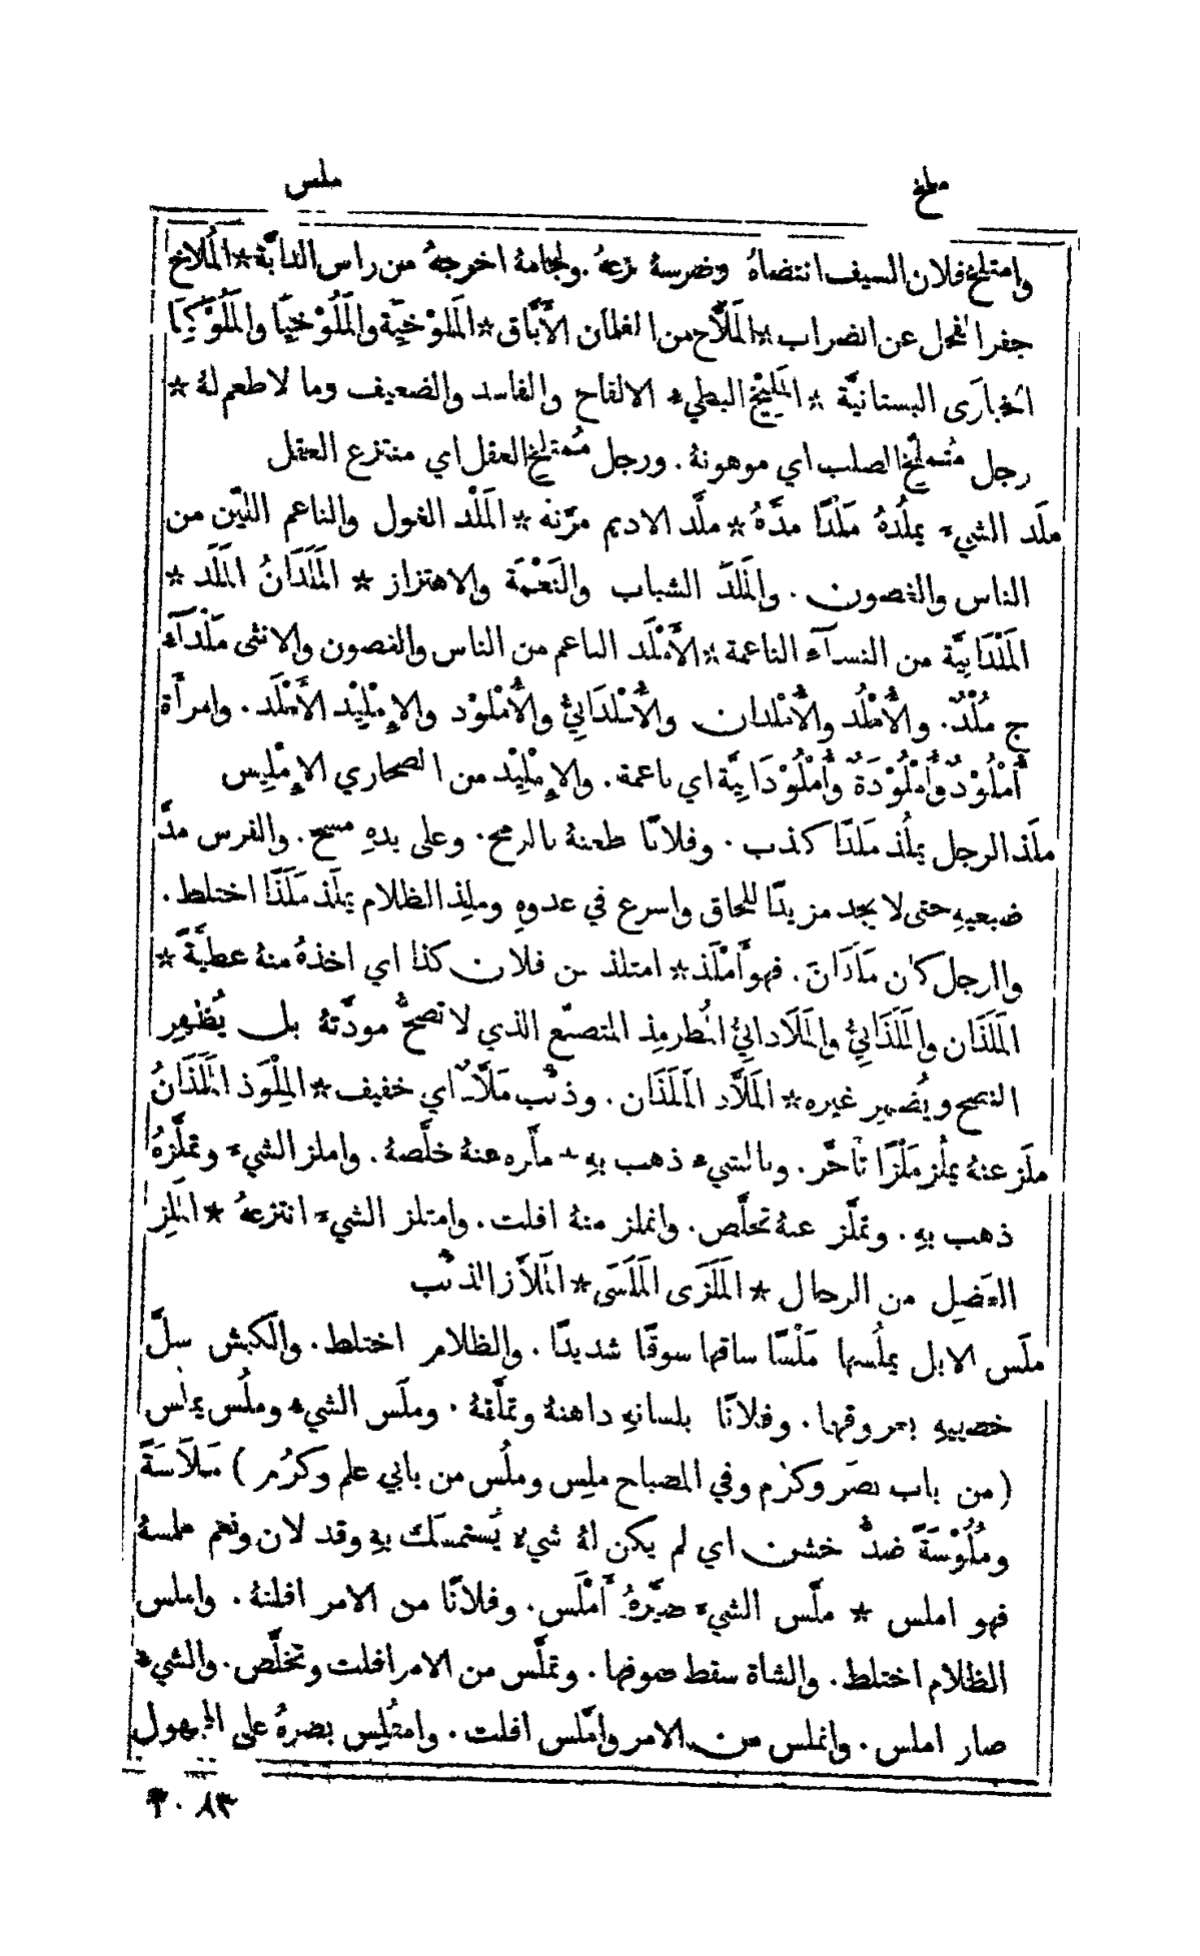 ملخ
ملس
وامتلخ فلان السيف انتضاهُ وضرسهُ نزعهُ . ولجامهُ اخرجهُ من راس الدابَّة * المُلاخ
جفر الفحل عن الضراب * المَلَّاخ من الغلمان الأَبَّاق * المَلوْخيَّة والمَلُوْخِيَّا والمَلُوْكِيَّا
الخُبازَى البستانيَّة * المَلِيْخ البطيءُ الالقاح والفاسد والضعيف وما لا طعم لهُ *
رجل مُتَمَلِّخ الصلب اي موهونهُ . ورجل مُمْتَلَخ العقل اي منتزع العقل
ملَد الشيءَ يملُدهُ مَلْدًا مدَّهُ * ملَّد الاديم مرَّنه * المَلْد الغول والناعم الليّن من
الناس والغصون . والمَلَد الشباب والنَعْمَة والاهتزاز * المَلَدَانُ المَلَد *
المَلْدَانِيَّة من النسآءِ الناعمة * الأَمْلَد الناعم من الناس والغصون والانثى مَلْدَآءُ
ج مُلْدٌ . والأُمْلُد والأُمْلدان والأُمْلدَانِيُّ والأُمْلوْد والإِمْلِيْد الأَمْلَد . وامرأَة
أُمْلُوْدٌ وأُمْلُوْدَةٌ وأُمْلُوْدَانِيَّة اي ناعمة . والإِمْلِيْد من الصحاري الإِمْلِيس
ملَذ الرجل يملُذ مَلْذًا كذب . وفلانًا طعنهُ بالرمح . وعلى يدهِ مسح . والفرس مدَّ
ضبعيهِ حتى لا يجد مزيدًا للحاق واسرع في عدوهِ وملِذ الظلام يملَذ مَلَذًا اختلط .
والرجل كان مَلَذَانَ . فهو أَمْلَذ * امتلذ من فلان كذا اي اخذهُ منهُ عطيَّةً *
المَلَذَان والمَلَذَانِيُّ والمَلَاذانِيُّ المُطرمِذ المتصنّع الذي لا تصحُّ مودَّتهُ بل يُظهِر
النصح ويُضمِر غيره * المَلَّاذ المَلَذَان . وذئب مَلَّاذ اي خفيف * المِلْوَذ المَلَذَانُ
ملَز عنهُ يملُز مَلْزًا تأَخَّر . وبالشيءِ ذهب بهِ * ملَّزه عنهُ خلَّصهُ . واملز الشيءَ وتملَّزهُ
ذهب بهِ . وتملَّز عنهُ تخلَّص . وانملز منهُ افلت . وامتلز الشيءَ انتزعهُ * المَلِز
العَضِل من الرجال * المَلَزَى المَلَسَى * المَلَّاز الذئب
ملَس الابل يملُسها مَلْسًا ساقها سوقًا شديدًا . والظلام اختلط . والكبش سلَّ
خصييهِ بعروقها . وفلانًا بلسانهِ داهنهُ وتملَّقهُ . وملَس الشيءُ وملُس يملُس
( من باب نصَر وكرُم وفي المصباح ملِس وملُس من بابي علم وكرُم ) مَلَاسَةً
ومُلُوْسَةً ضدُّ خشن اي لم يكن لهُ شيءٌ يُستمسَك بهِ وقد لان ونعم ملمسهُ
فهو املس * ملَّس الشيءَ صيَّرهُ أَمْلَس . وفلانًا من الامر افلتهُ . واملس
الظلام اختلط . والشاة سقط صوفها . وتملَّس من الامر افلت وتخلَّص . والشيءُ
صار املس . وانملس من الامر وامَّلس افلت . وامتُلِس بصرهُ على المجهول
٢٠٨٣